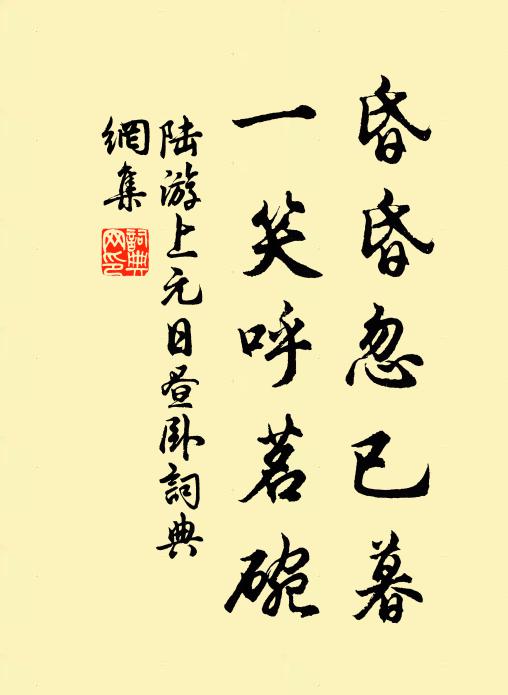 昏昏忽已暮
一笑呼茗碗
陆游上元日昼卧詞典
網集
詞典
网印